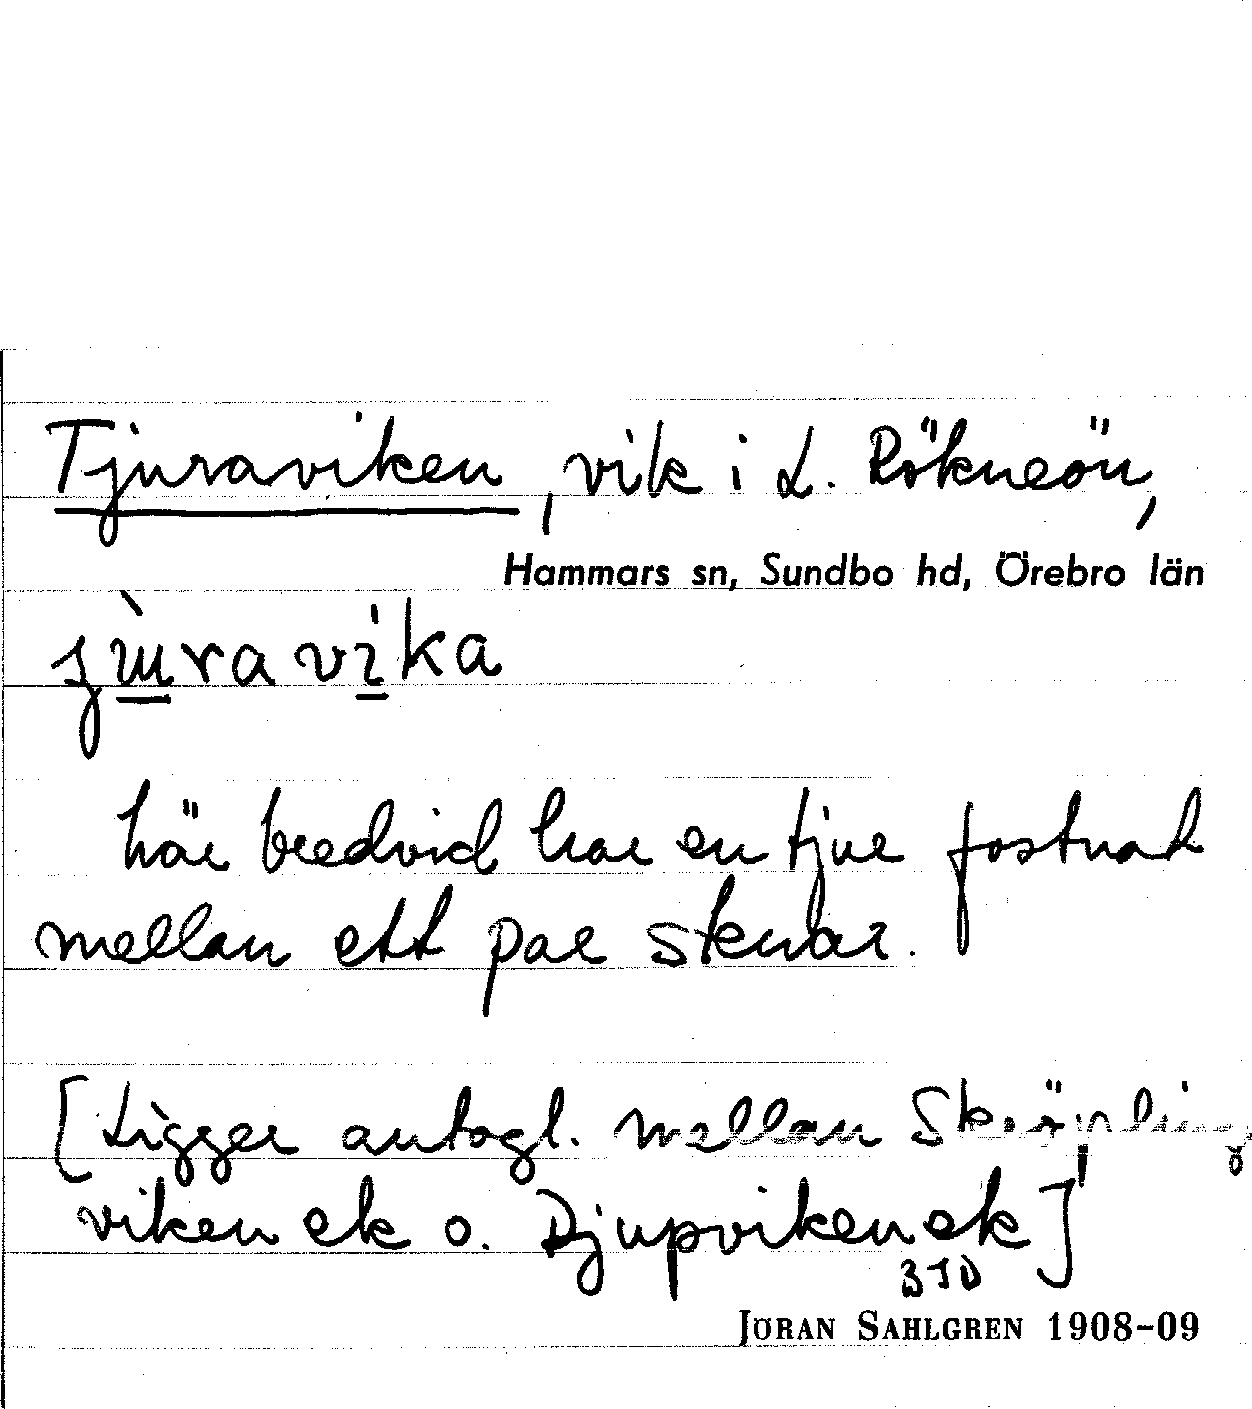 Tjuraviken, vik i L. Rökneön,
Hammars sn, Sundbo hd, Örebro län
här bredvid har en tjur fastnat
mellan ett par stenar.
[Ligger antagl. mellan
viken ek o. Djupviken ek]
JÖRAN SAHLGREN 1908-09